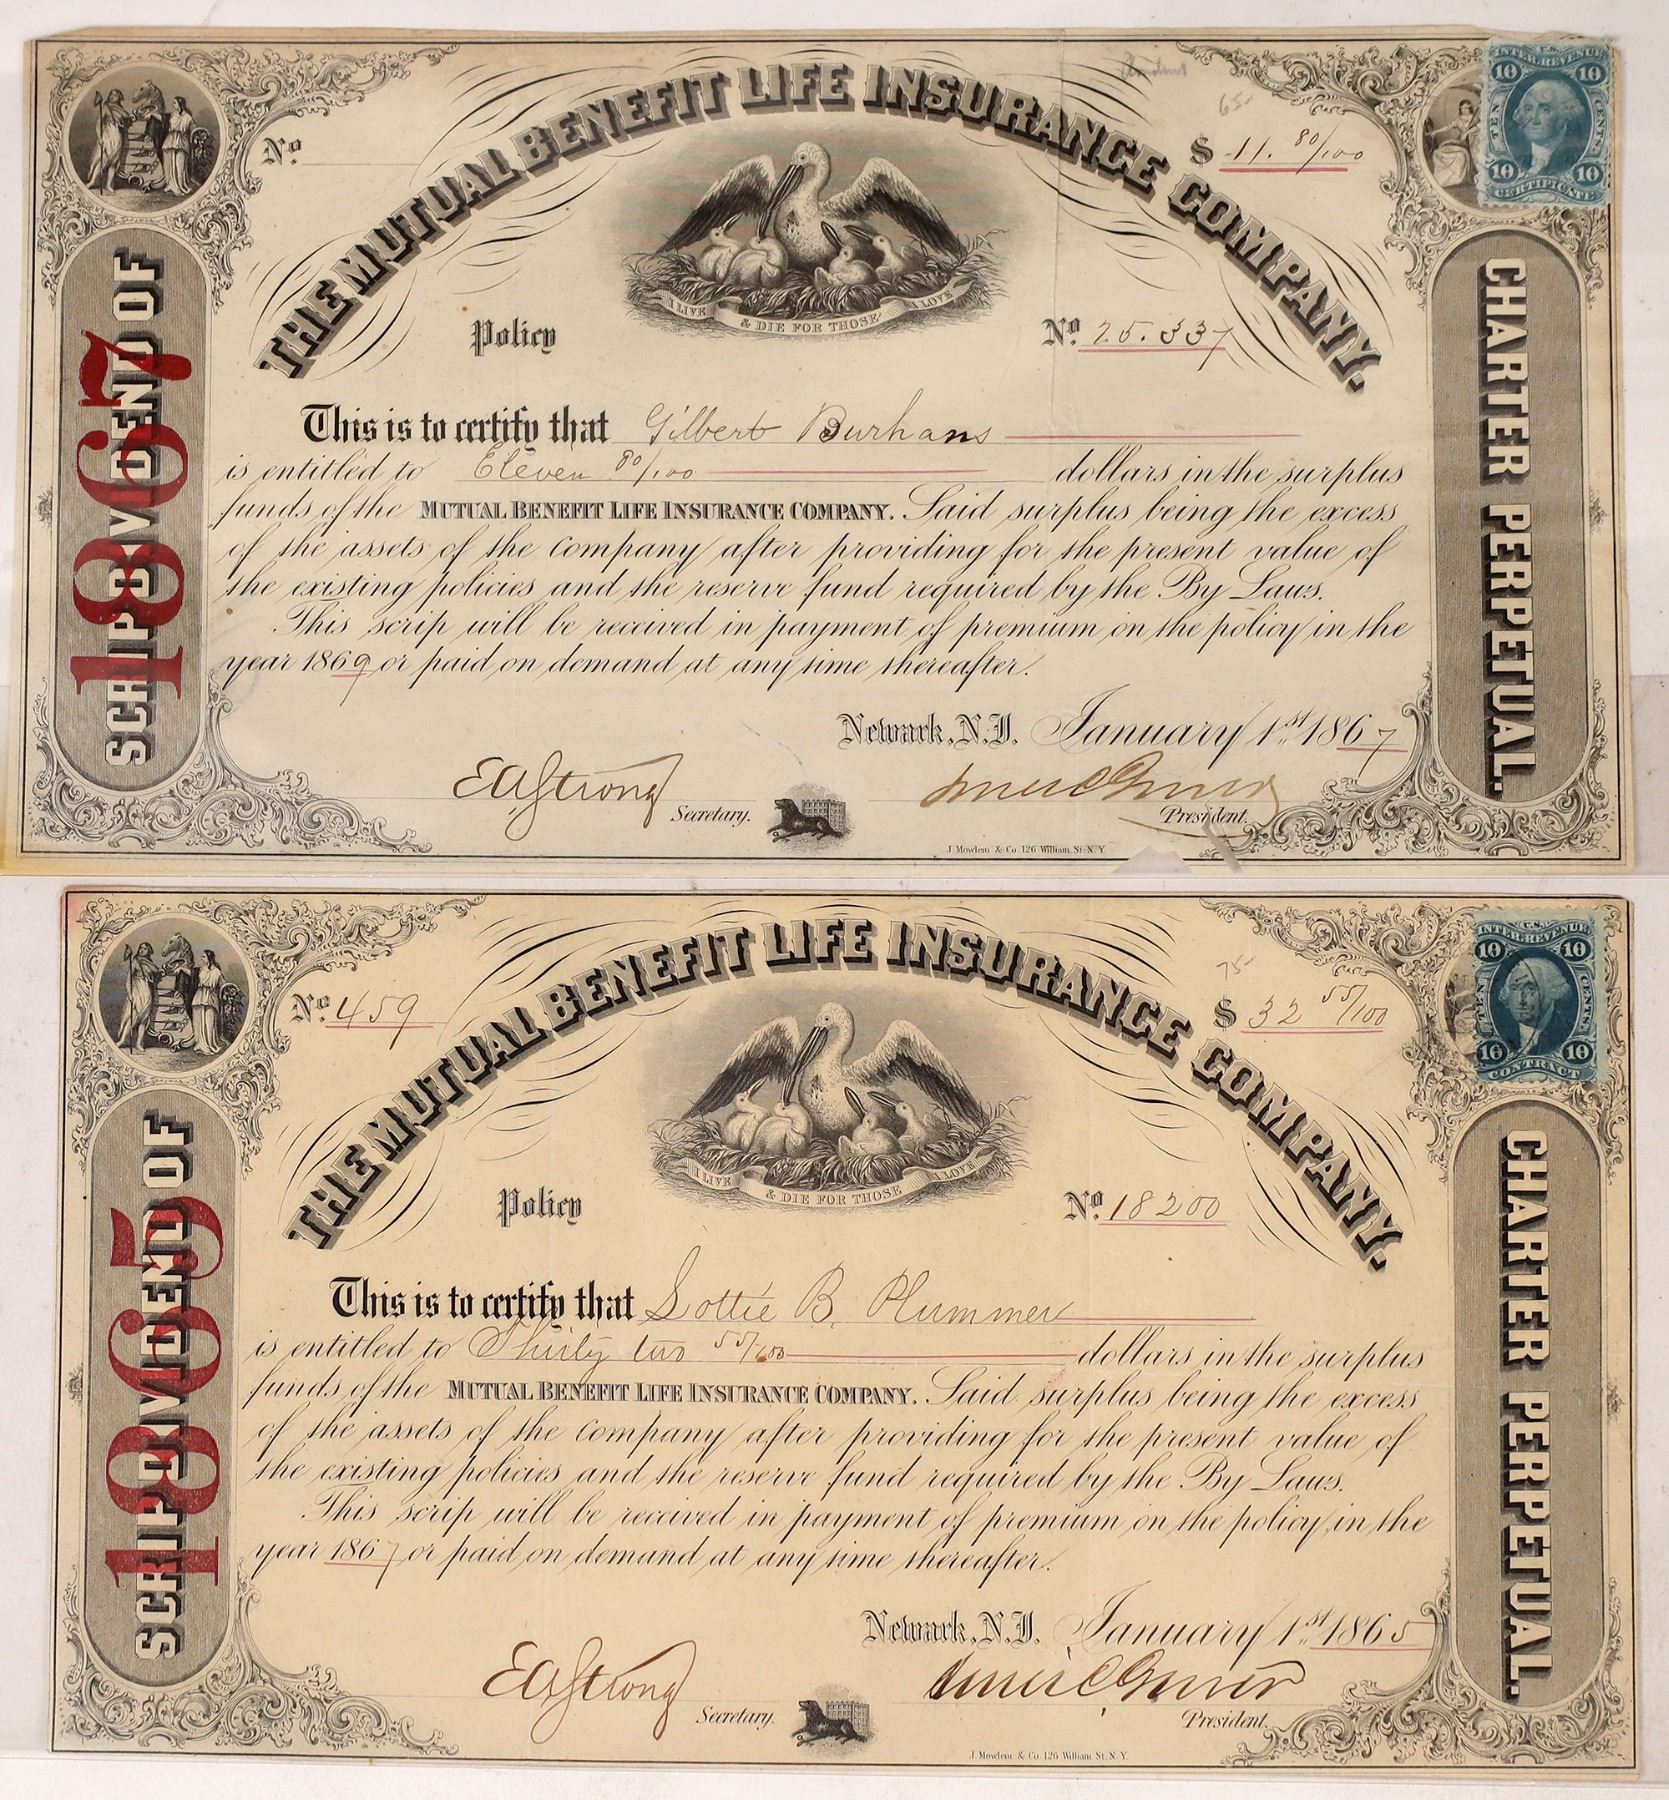 THE MUTUAL BENEFIT LIFE INSURANCE COMPANY.
No
65-
$ 11. 80/100
U.S.
INTER. REVENUE
10 10
TEN CENTS
10 10
CERTIFICATE
I LIVE & DIE FOR THOSE I LOVE
Policy No 25.337
SCRIP DIVIDEND OF
1867
CHARTER PERPETUAL.
This is to certify that Gilbert Burhans
is entitled to Eleven 80/100 dollars in the surplus
funds of the MUTUAL BENEFIT LIFE INSURANCE COMPANY. Said surplus being the excess
of the assets of the company after providing for the present value of
the existing policies and the reserve fund required by the By Laws.
This scrip will be received in payment of premium on the policy in the
year 1869 or paid on demand at any time thereafter.
Newark, N.J. January 1st 1867
EAStrong Secretary.
President.
J. Mowlem & Co. 126 William St. N.Y.
THE MUTUAL BENEFIT LIFE INSURANCE COMPANY.
No 459
75-
$ 32 55/100
U.S.
INTER. REVENUE
10 10
TEN CENTS.
10 10
CONTRACT
I LIVE & DIE FOR THOSE I LOVE
Policy No 18200
SCRIP DIVIDEND OF
1865
CHARTER PERPETUAL.
This is to certify that Lottie B. Plummer
is entitled to Thirty two 55/100 dollars in the surplus
funds of the MUTUAL BENEFIT LIFE INSURANCE COMPANY. Said surplus being the excess
of the assets of the company after providing for the present value of
the existing policies and the reserve fund required by the By Laws.
This scrip will be received in payment of premium on the policy in the
year 1867 or paid on demand at any time thereafter.
Newark, N.J. January 1st 1865
EAStrong Secretary.
President.
J. Mowlem & Co. 126 William St. N.Y.